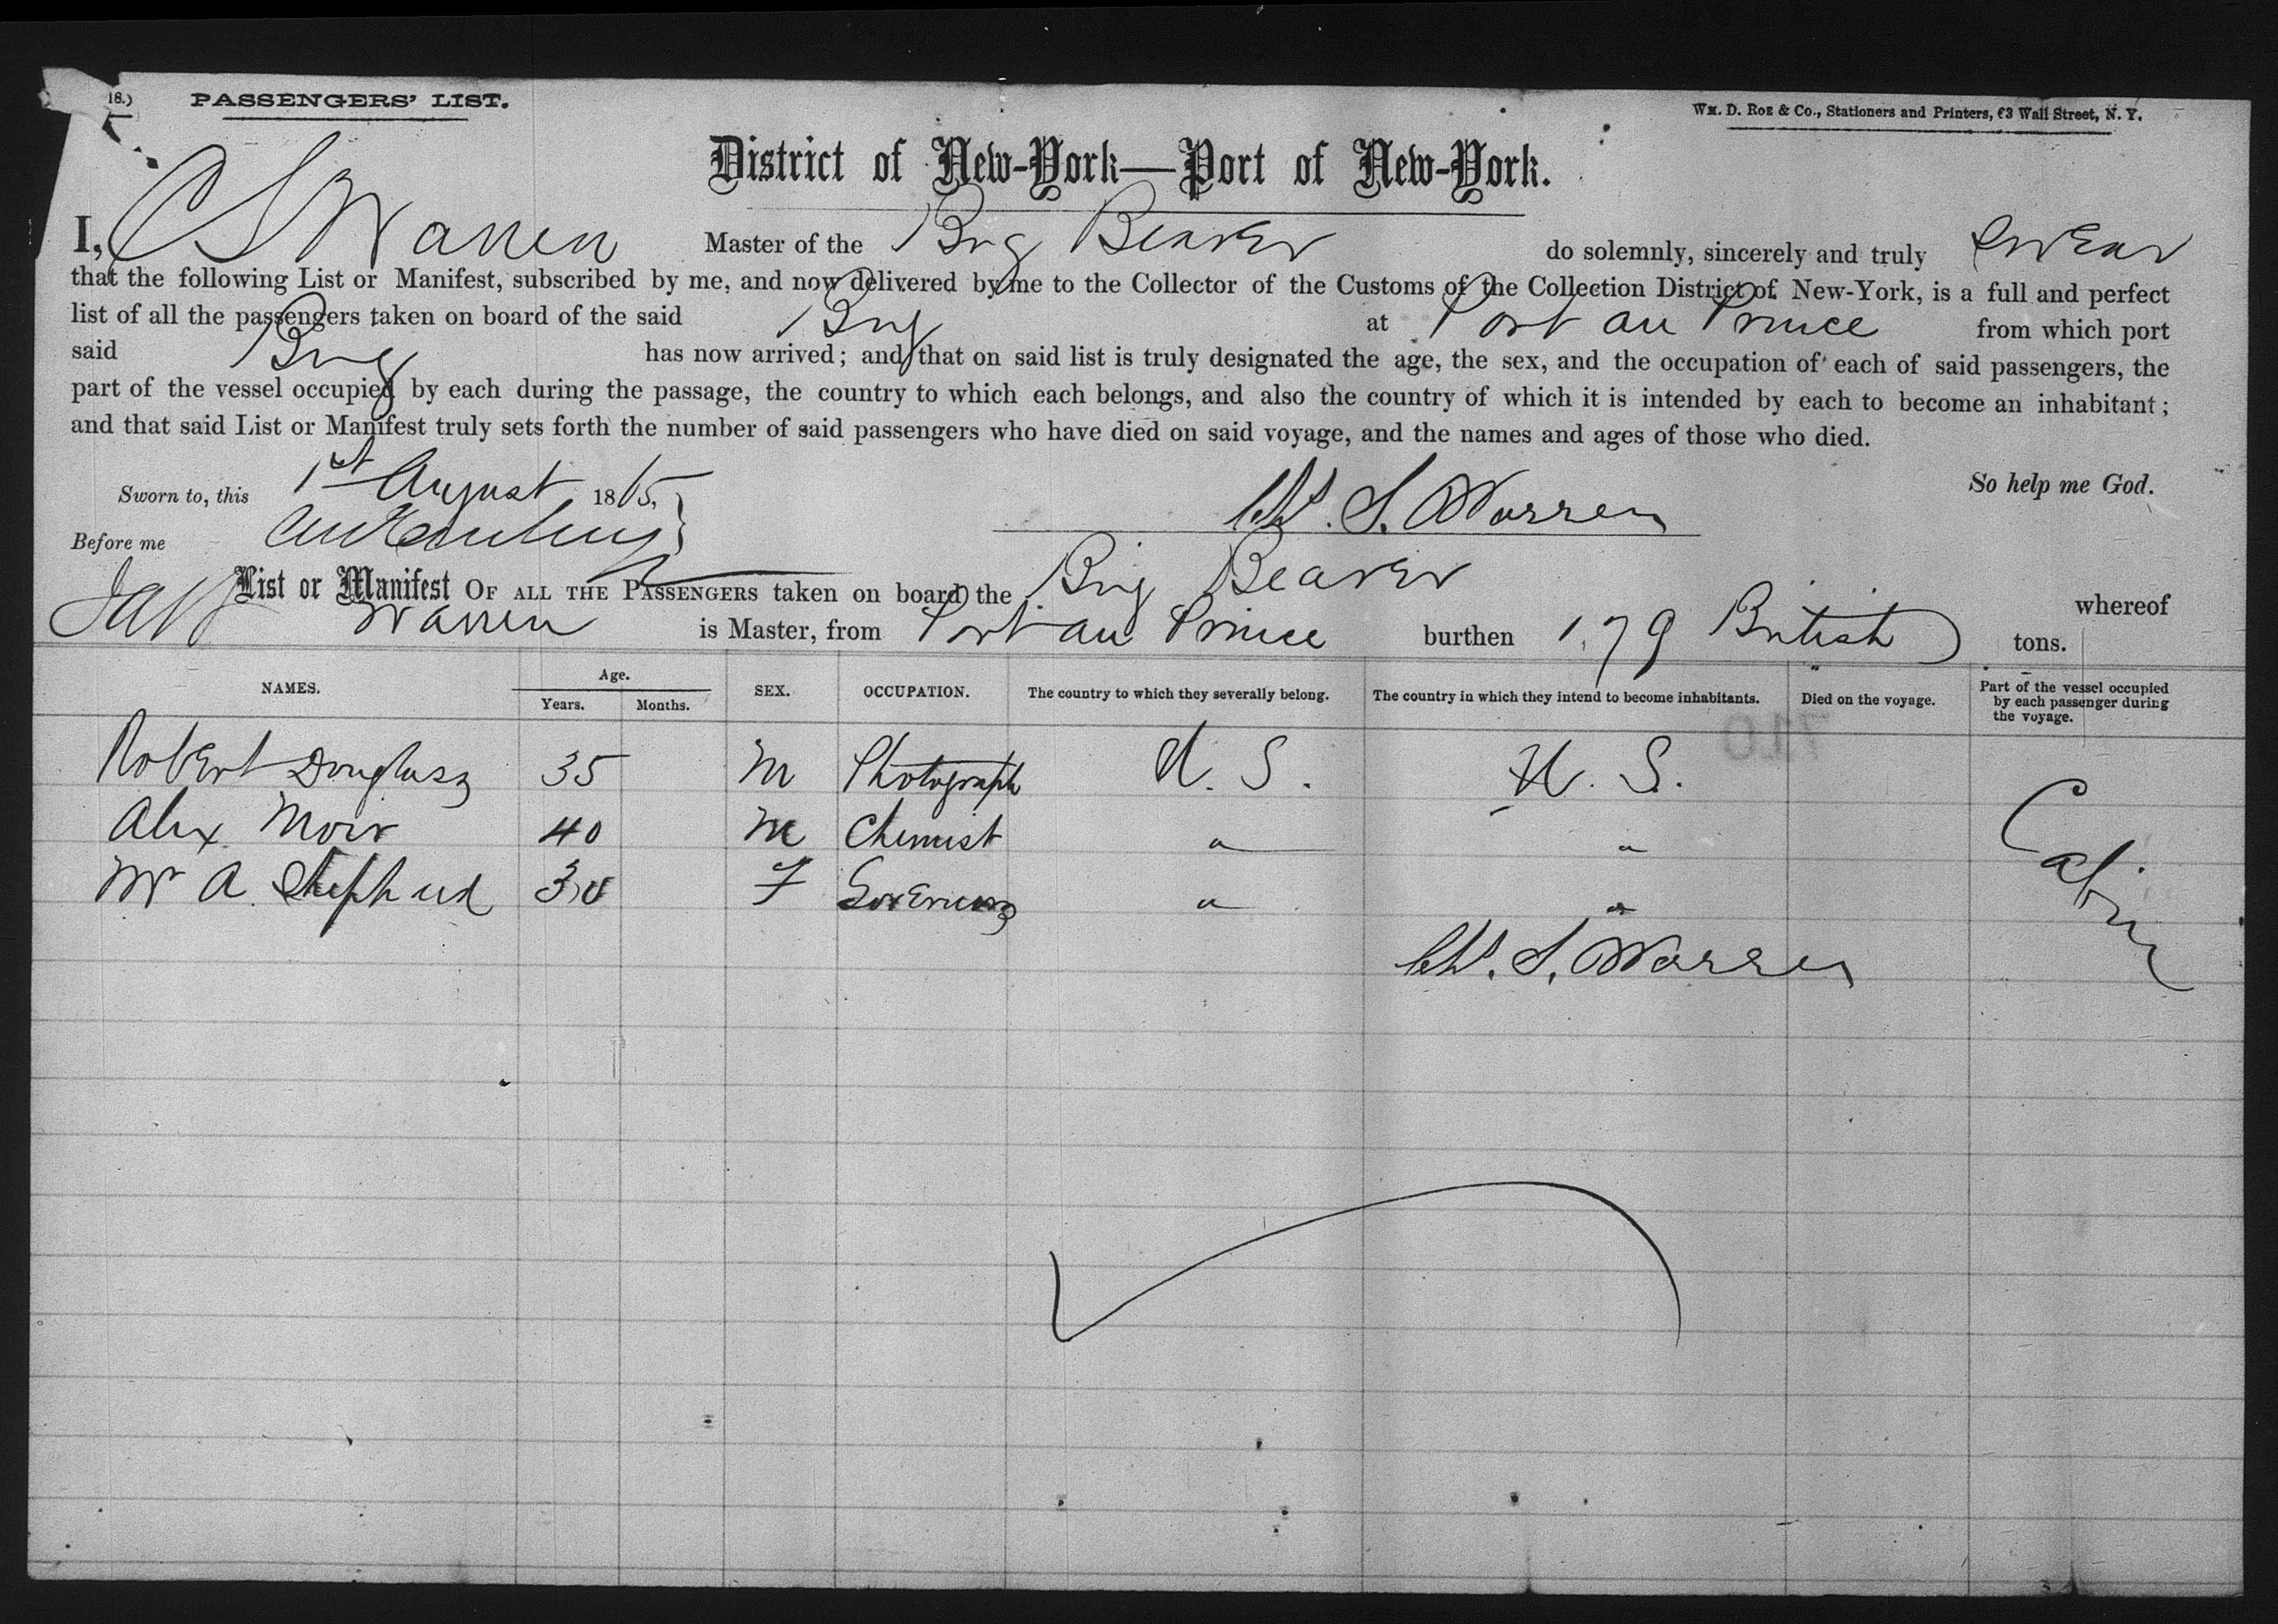 18.) PASSENGERS' LIST.
Wm. D. Roe & Co., Stationers and Printers, 63 Wall Street, N. Y.
District of New-York—Port of New-York.
I, C S Warren Master of the Brig Beaver do solemnly, sincerely and truly swear
that the following List or Manifest, subscribed by me, and now delivered by me to the Collector of the Customs of the Collection District of New-York, is a full and perfect
list of all the passengers taken on board of the said Brig at Port au Prince from which port
said Brig has now arrived; and that on said list is truly designated the age, the sex, and the occupation of each of said passengers, the
part of the vessel occupied by each during the passage, the country to which each belongs, and also the country of which it is intended by each to become an inhabitant;
and that said List or Manifest truly sets forth the number of said passengers who have died on said voyage, and the names and ages of those who died.
So help me God.
Sworn to, this 1st August 1865, Chs. S. Warren
Before me
List or Manifest OF ALL THE PASSENGERS taken on board the Brig Beaver whereof
Warren is Master, from Port au Prince burthen 179 British tons.
NAMES. Age. Years. Months. SEX. OCCUPATION. The country to which they severally belong. The country in which they intend to become inhabitants. Died on the voyage. Part of the vessel occupied by each passenger during the voyage.
710
Robert Douglass 35 M Photograph U. S. U. S.
Alex Moir 40 M Chemist " "
A Shepherd F Governess " "
Cabin
Chs. S. Warren